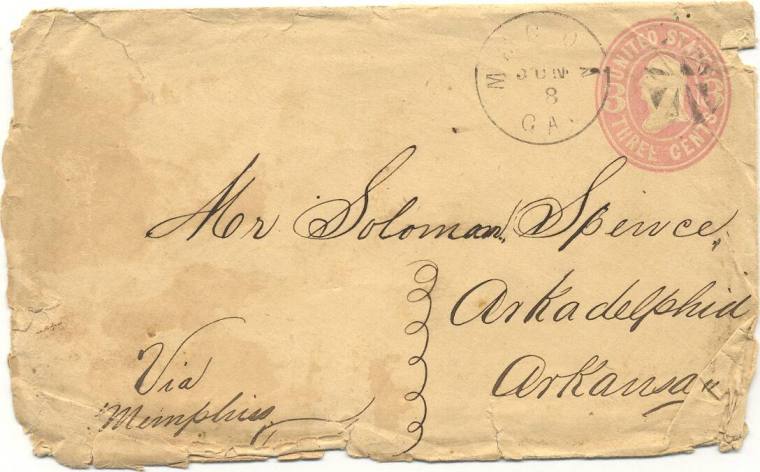 MACON
JUN
8
GA.
UNITED STATES
THREE CENTS
Mr Solomon Spence,
Arkadelphia
Arkansas
Via
Memphis